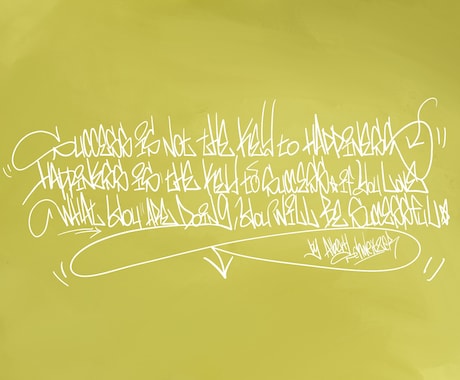 SUCCESS iS NOT tHE KEY to HAPPiNESS.
HAPPiNESS iS tHE KEY tO SUCCESS. if YOU LOVE
WHAT YOU ARE DOiNG, YOU WiLL BE SUCCESSFUL.
by Albert Schweitzer